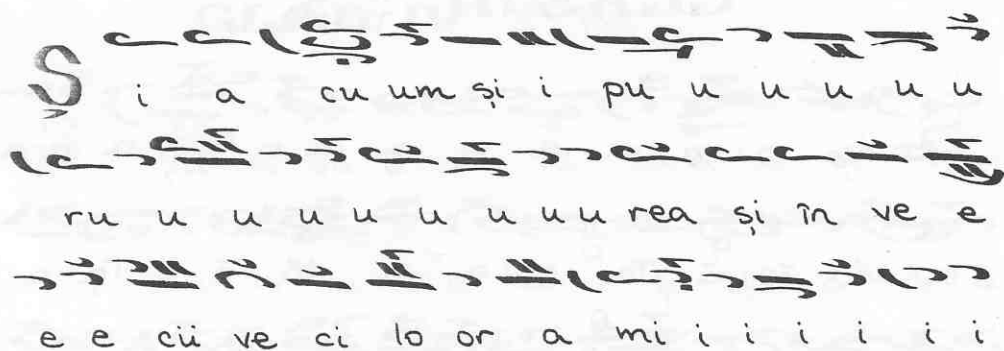 Și a cu um și i pu u u u u u
ru u u u u u u u u rea și în ve e
e e cii ve ci lo or a mi i i i i i i